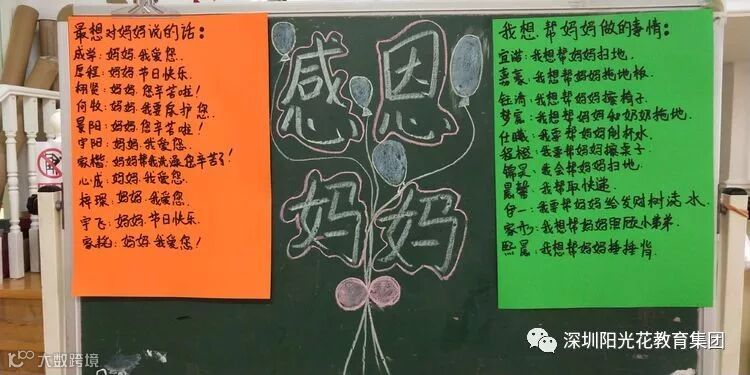 最想对妈妈说的话:
成学:妈妈.我爱您.
厚程:妈妈.节日快乐.
栩贤:妈妈.您辛苦啦!
向牧:妈妈.我要保护您.
景阳:妈妈.您辛苦啦!
宇阳:妈妈.我爱您.
家楷:妈妈帮我洗澡您辛苦了!
心成:妈妈.我爱您.
梓琛:妈妈.我爱您.
宇飞:妈妈.节日快乐
家耗:妈妈.我爱您!
感恩
妈妈
我想帮妈妈做的事情:
宜诺:我想帮妈妈扫地.
嘉豪:我想帮妈妈拖地板.
钰涛:我想帮妈妈擦椅子.
梦宸:我想帮妈妈和奶奶拖地.
仕曦:我要帮妈妈倒杯水.
程樾:我要帮妈妈擦桌子.
锦文:我会帮妈妈扫地.
晨馨:我帮取快递.
伊一:我要帮妈妈给发财树浇水.
家彤:我想帮妈妈照顾小弟弟.
熙晨:我想帮妈妈捶捶背
深圳阳光花教育集团
大数跨境